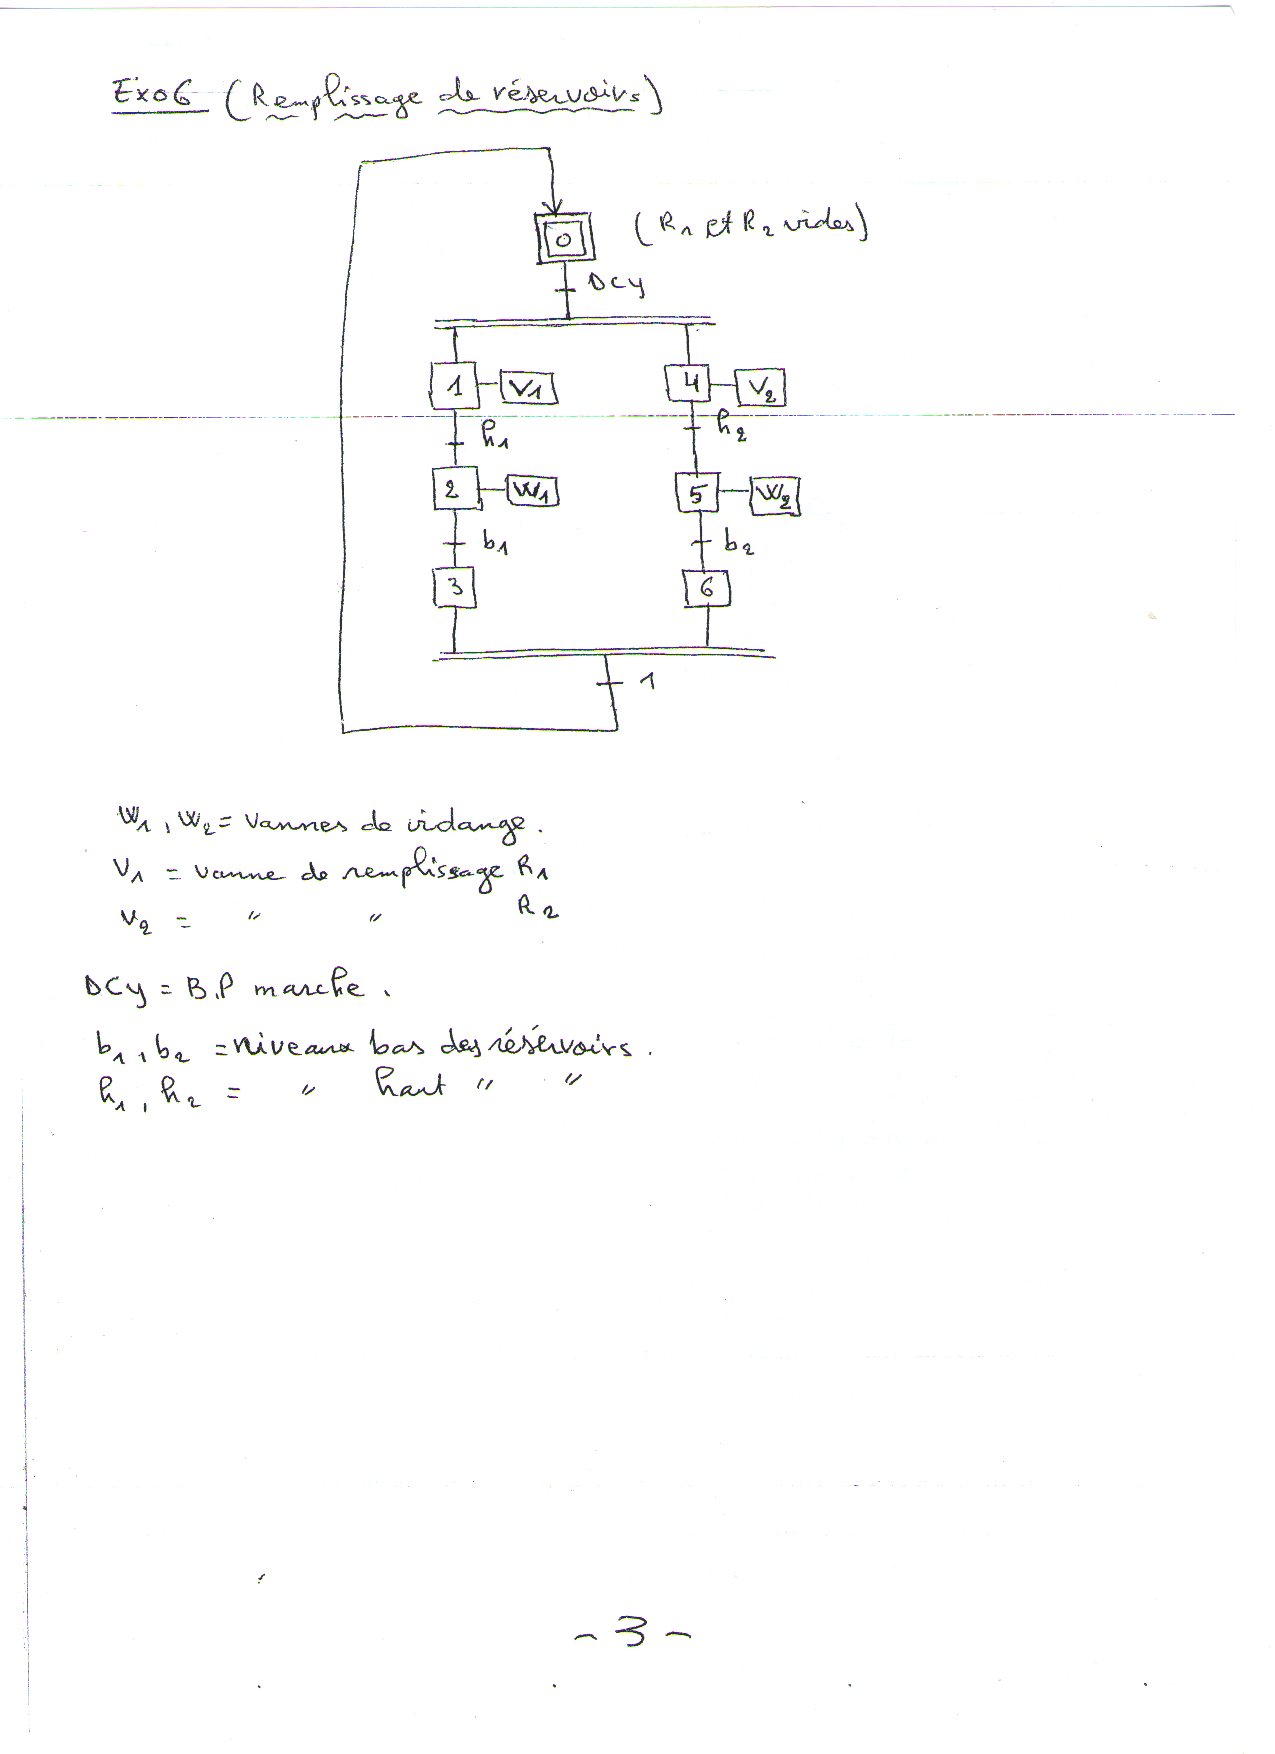 Exo6 (Remplissage de réservoirs)
0 (R1 et R2 vides)
DCy
1 V1 4 V2
h1 h2
2 W1 5 W2
b1 b2
3 6
1
W1, W2 = Vannes de vidange.
V1 = vanne de remplissage R1
V2 = " " R2
DCy = B.P marche.
b1, b2 = niveaux bas des réservoirs.
h1, h2 = " haut " "
- 3 -